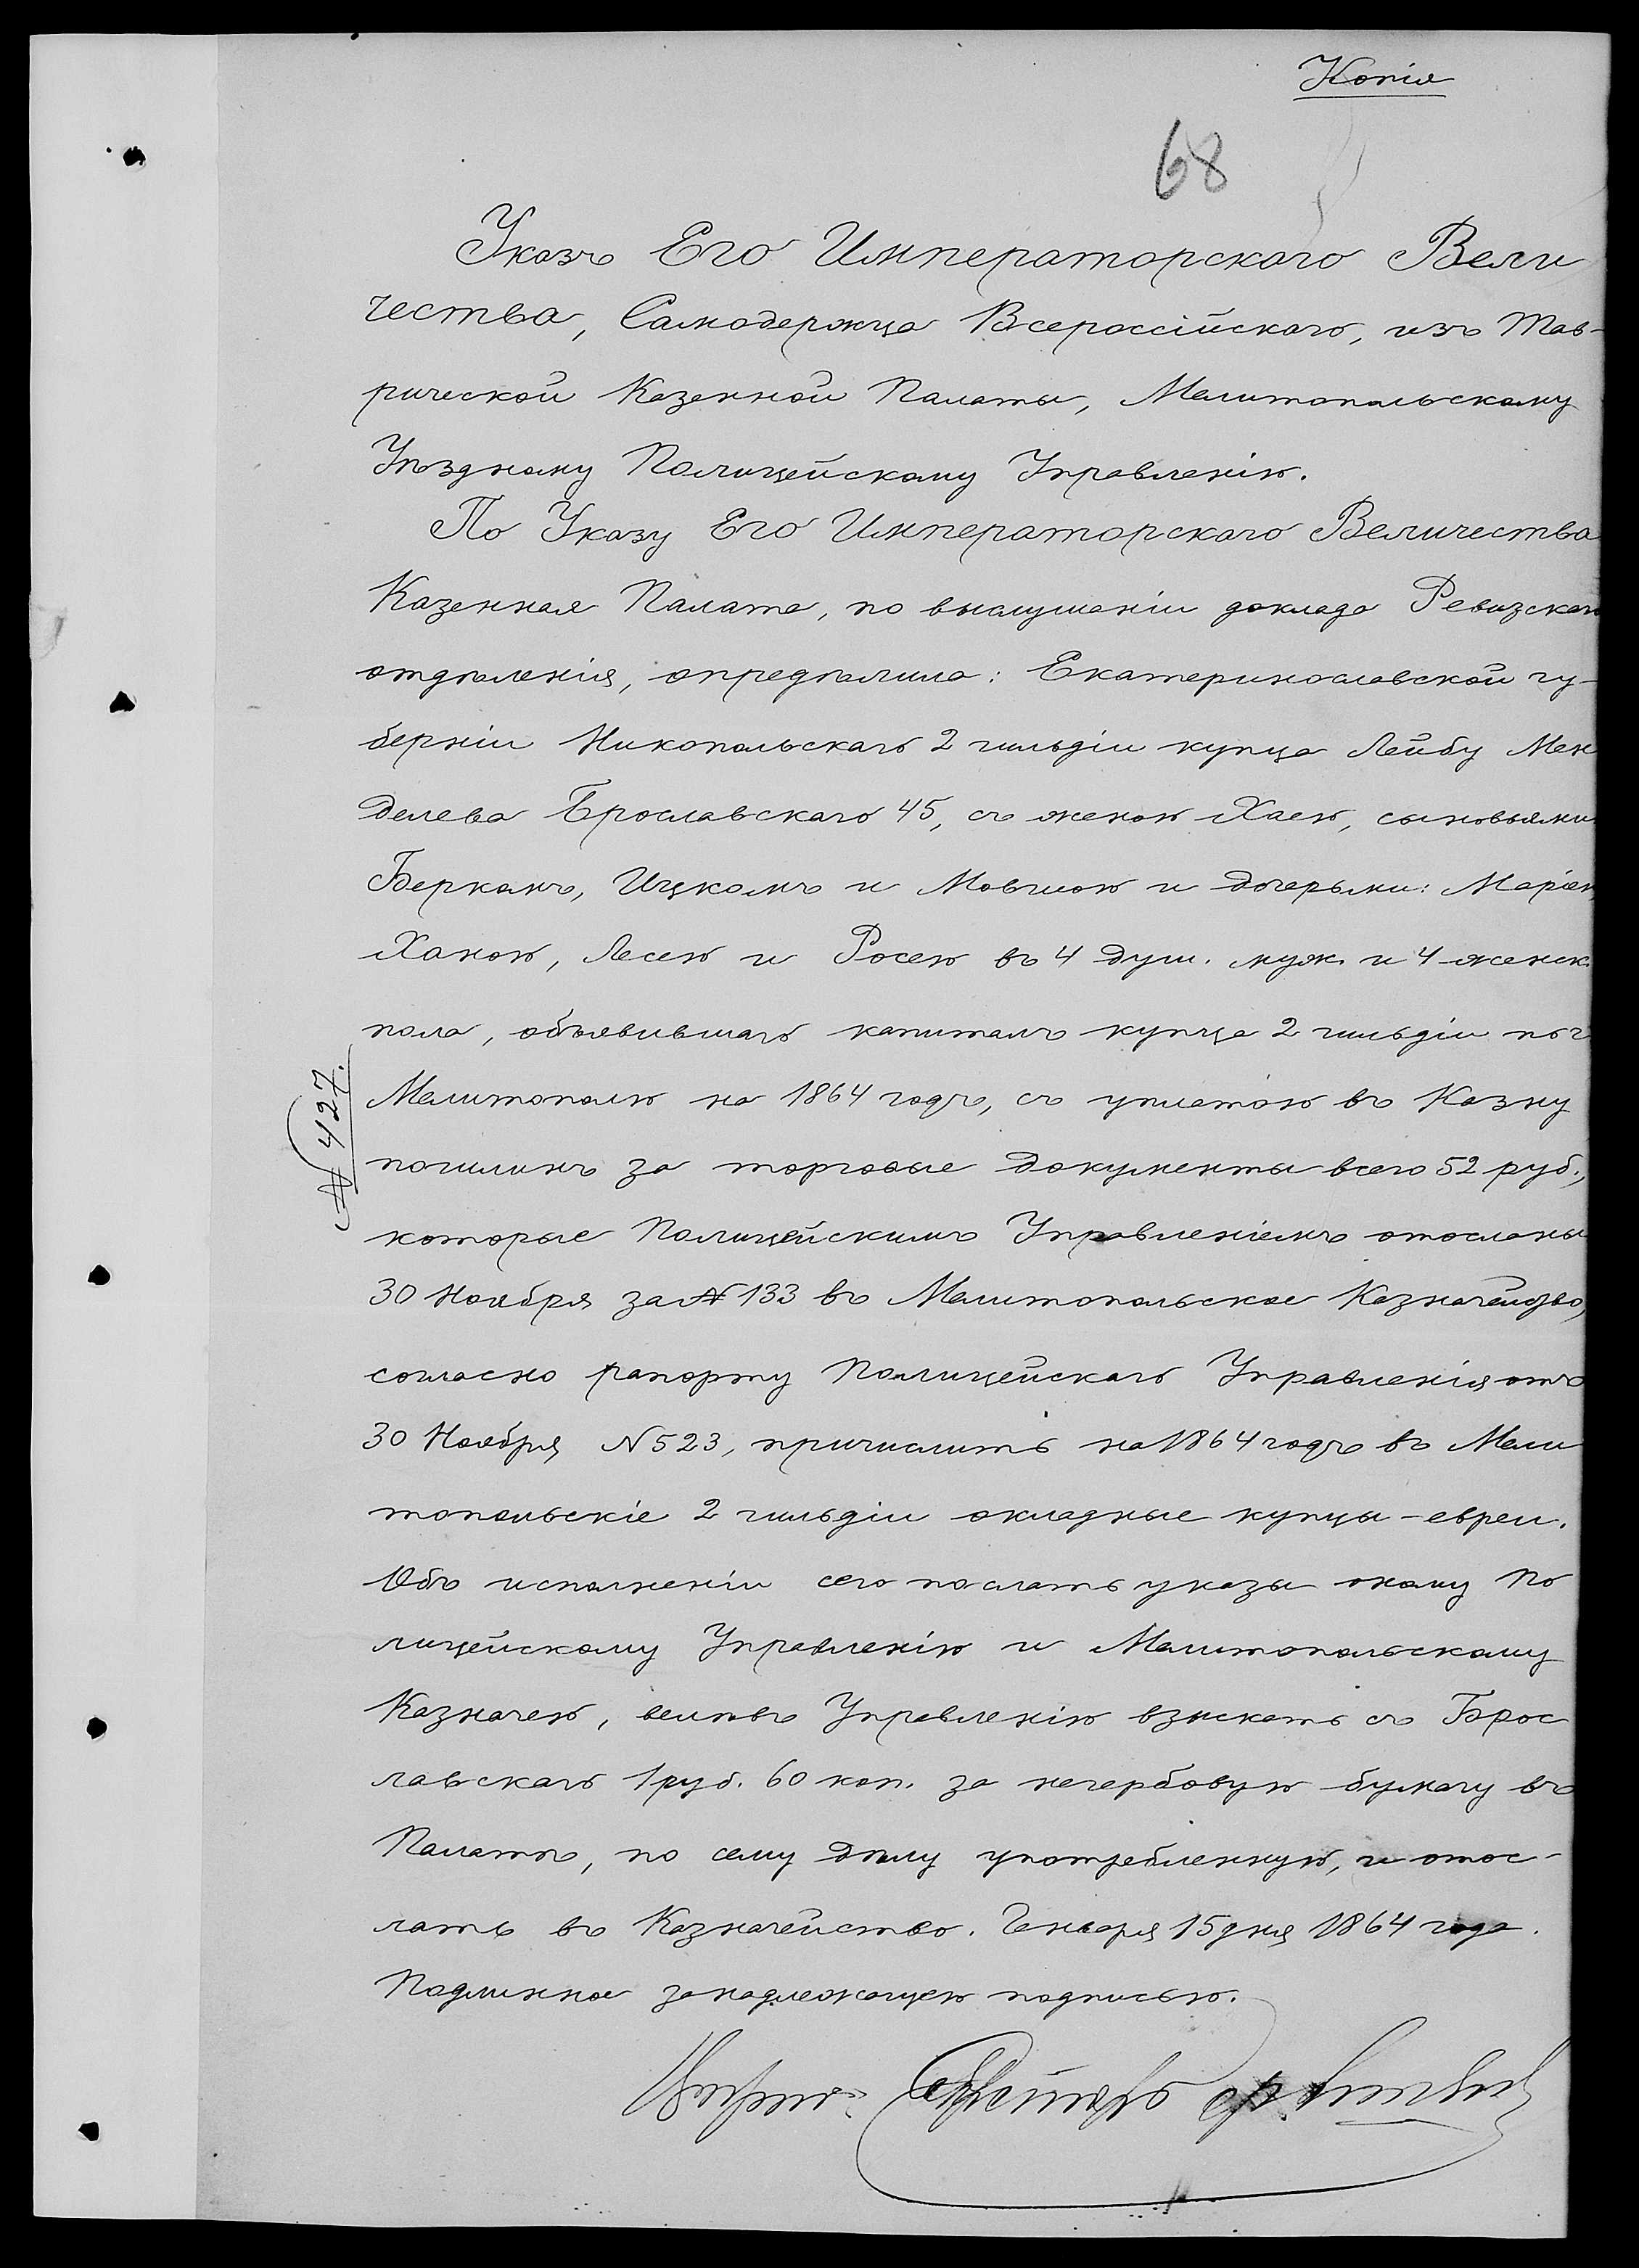 Копія
68
Указъ Его Императорскаго Вели
чества, Самодержца Всероссійскаго, изъ Тав-
рической Казенной Палаты, Мелитопольскому
Уѣздному Полицейскому Управленію.
По Указу Его Императорскаго Величества
Казенная Палата, по выслушаніи доклада Ревизскаго
отдѣленія, опредѣлила: Екатеринославской гу-
берніи Никопольскаго 2 гильдіи купца Лейбу Мен
делева Брославскаго 45, съ женою Хаею, сыновьями
Беркомъ, Ицкомъ и Мовшою и дочерьми: Маріею,
Ханою, Лесею и Росею въ 4 душ. муж. и 4 женск.
пола, объявившаго капиталъ купца 2 гильдіи по г.
Мелитополю на 1864 годъ, съ уплатою въ Казну
пошлинъ за торговые документы всего 52 руб.,
№ 427.
которые Полицейскимъ Управленіемъ отосланы
30 Ноября за № 133 въ Мелитопольское Казначейство,
согласно рапорту Полицейскаго Управленія отъ
30 Ноября N 523, причислить на 1864 годъ въ Мели
топольскіе 2 гильдіи окладные купцы-евреи.
Объ исполненіи сего послать указы оному По
лицейскому Управленію и Мелитопольскому
Казначею, велѣвъ Управленію взыскать съ Брос
лавскаго 1 руб. 60 коп. за негербовую бумагу въ
Палатѣ, по сему дѣлу употребленную, и отос-
лать въ Казначейство. Генваря 15 дня 1864 года.
Подлинное за надлежащею подписью.